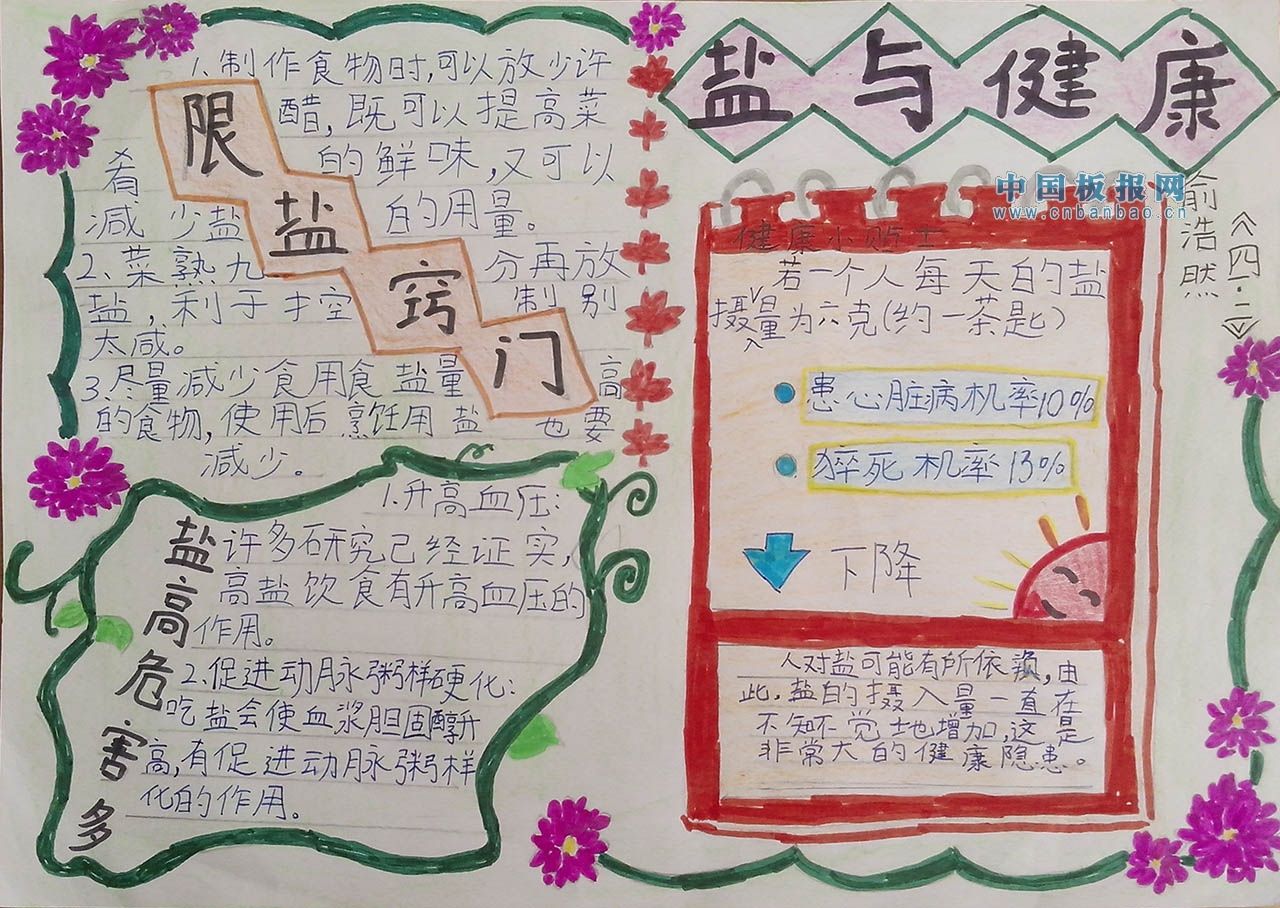 盐与健康
中国板报网
www.cnbanbao.cn
俞浩然
《四·二》
限盐窍门
1、制作食物时,可以放少许
醋,既可以提高菜
肴的鲜味,又可以
减少盐的用量。
2、菜熟九分再放
盐,利于控制别
太咸。
3、尽量减少食用食盐量高
的食物,使用后烹饪用盐也要
减少。
盐高危害多
1.升高血压:
许多研究己经证实,
高盐饮食有升高血压的
作用。
2、促进动脉粥样硬化:
吃盐会使血浆胆固醇升
高,有促进动脉粥样
化的作用。
健康小贴士
若一个人每天白的盐
摄量入为六克(约一茶匙)
患心脏病机率10%
猝死机率13%
下降
人对盐可能有所依赖,由
此,盐白的摄入量一直在
不知不觉地增加,这是
非常大白的健康隐患。